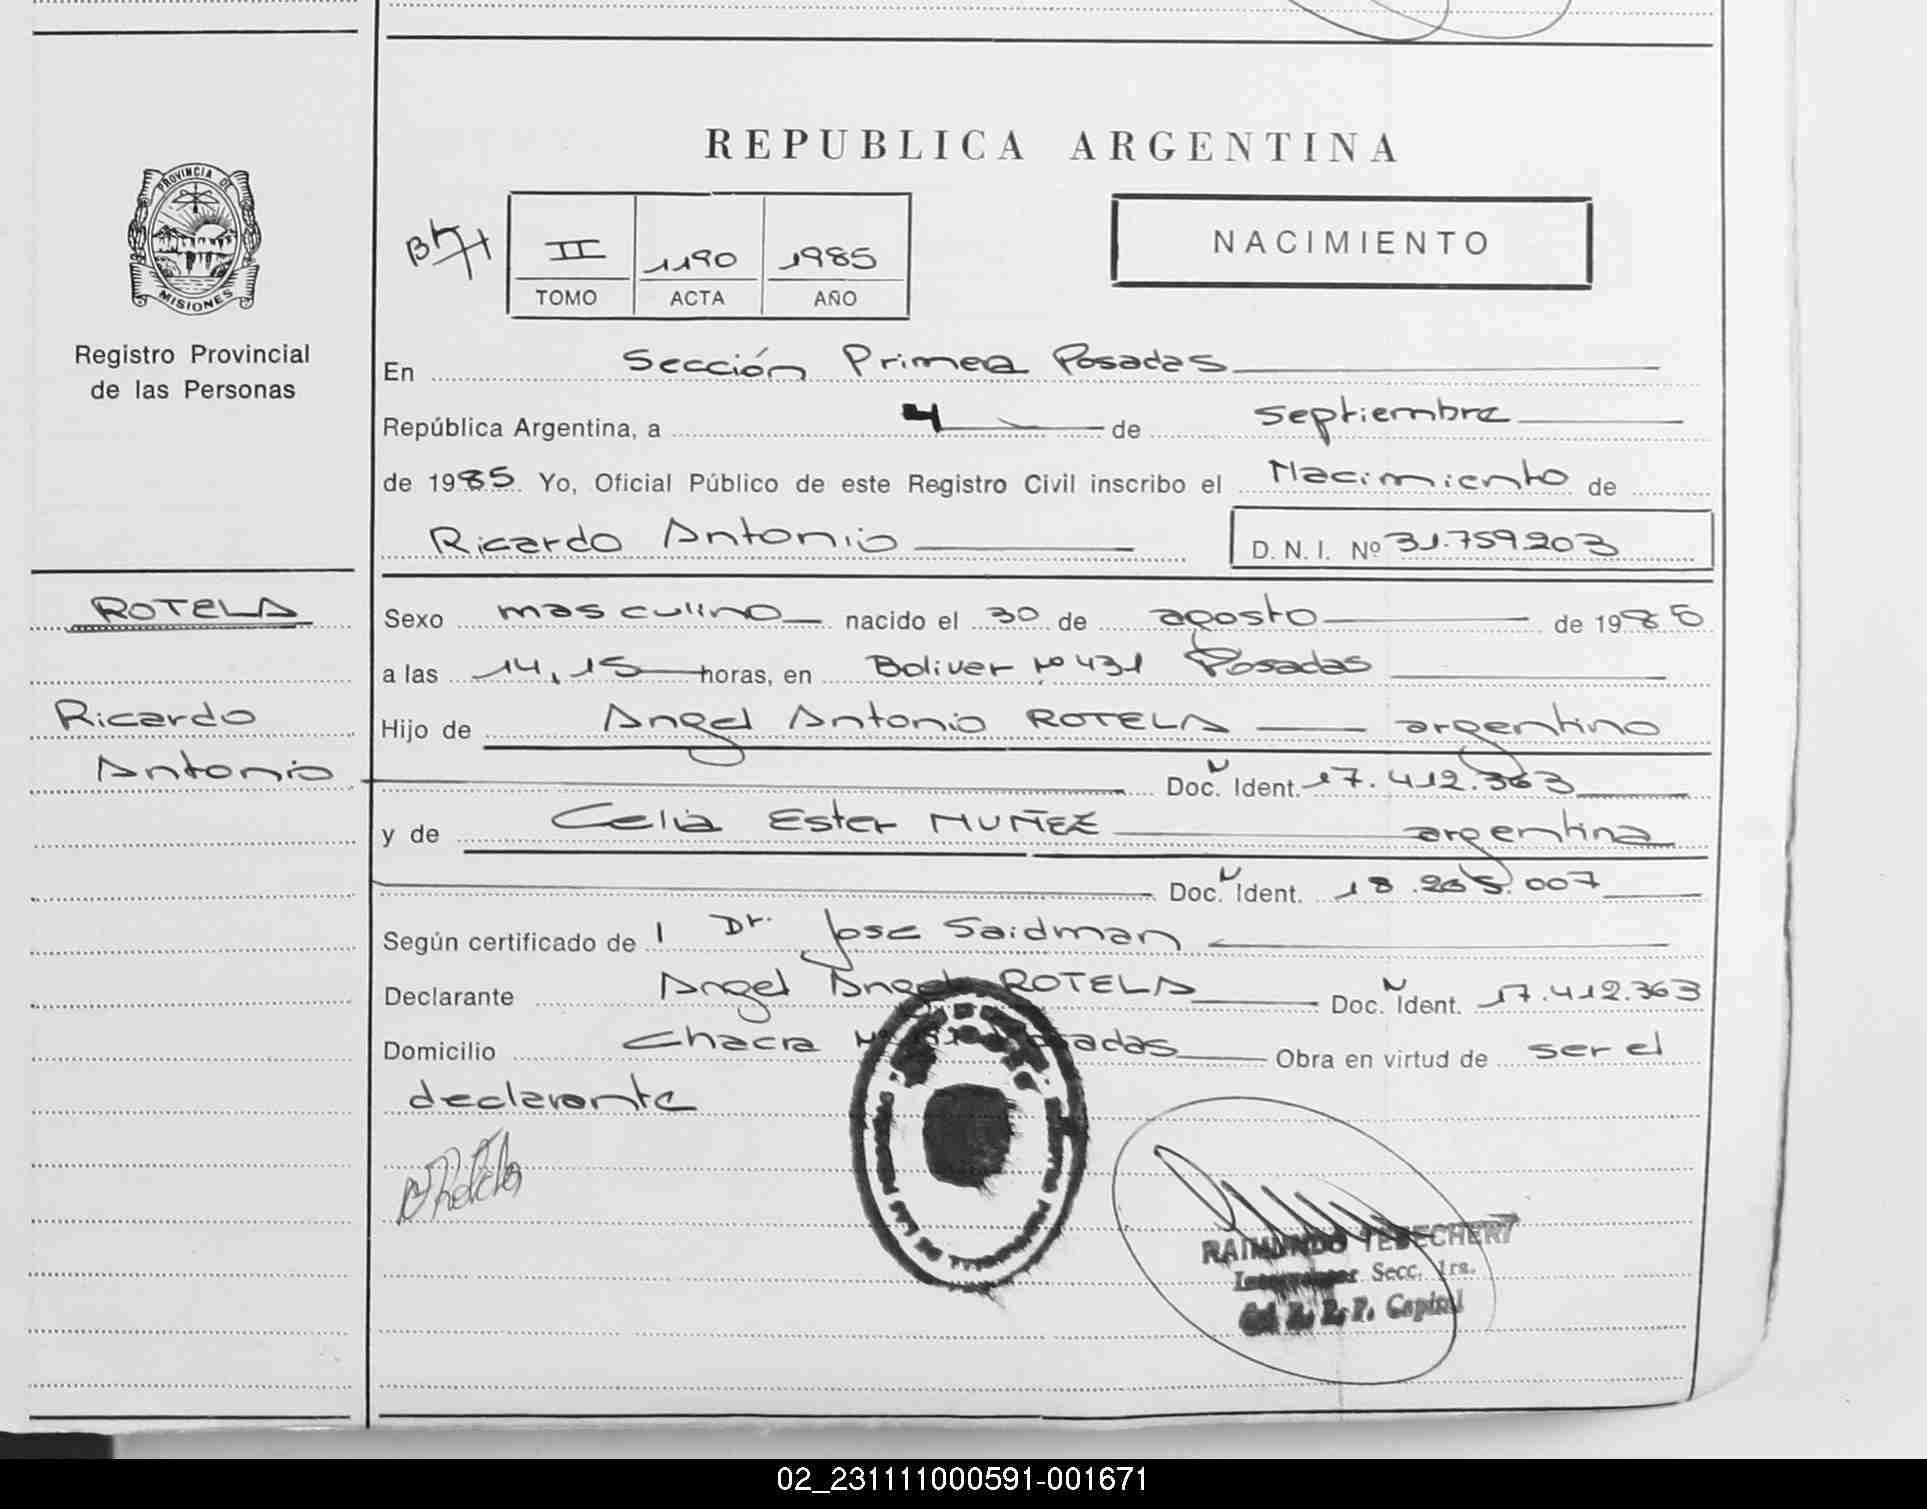 REPUBLICA ARGENTINA
PROVINCIA DE
MISIONES
Registro Provincial
de las Personas
II 1190 1985
TOMO ACTA AÑO
NACIMIENTO
En Sección Primera Posadas
República Argentina, a 4 de septiembre
de 1985 Yo, Oficial Público de este Registro Civil inscribo el Nacimiento de
Ricardo Antonio D. N. I. Nº 31.759.203
ROTELA
Ricardo
Antonio
Sexo masculino nacido el 30 de agosto de 1985
a las 14,15 horas, en Bolivar Nº 431 Posadas
Hijo de Angel Antonio ROTELA argentino
Doc. N Ident. 17.412.363
y de Celia Ester NUÑEZ argentina
Doc. N Ident. 18.265.007
Según certificado de l Dr. Jose Saidman
Declarante Angel ROTELA Doc. N Ident. 17.412.363
Domicilio Chacra Nº Posadas Obra en virtud de ser el
declarante
DE LAS PERSONAS
RAIMUNDO
Secc. 1ra.
Capital
02_231111000591-001671